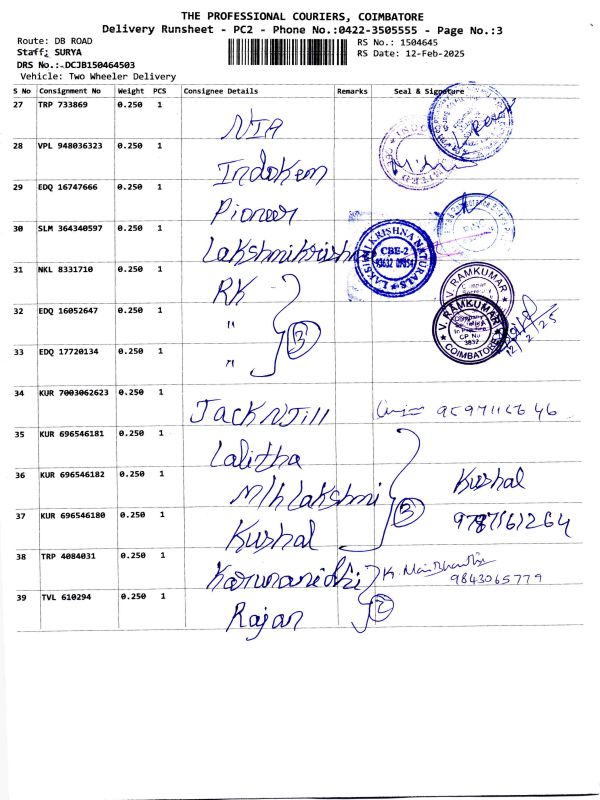 THE PROFESSIONAL COURIERS, COIMBATORE
Delivery Runsheet - PC2 - Phone No.:0422-3505555 - Page No.:3
Route: DB ROAD
RS No.: 1504645
Staff: SURYA
RS Date: 12-Feb-2025
DRS No.:-DCJB150464503
Vehicle: Two Wheeler Delivery
S No Consignment No Weight PCS Consignee Details Remarks Seal & Signature
27 TRP 733869 0.250 1 NIA
28 VPL 948036323 0.250 1 Indokem
29 EDQ 16747666 0.250 1 Pioneer
30 SLM 364340597 0.250 1 Lakshmikrishna
LAKSHMI KRISHNA NATURALS
CBE-2
31 NKL 8331710 0.250 1 RK
V. RAMKUMAR
32 EDQ 16052647 0.250 1 " 3
V. RAMKUMAR
Company
Secretary
In Practice
CP No
3832
COIMBATORE
12/2/25
33 EDQ 17720134 0.250 1 "
34 KUR 7003062623 0.250 1 JackNJill
35 KUR 696546181 0.250 1 Lalitha
36 KUR 696546182 0.250 1 M/h Lakshmi 3 Kushal
37 KUR 696546180 0.250 1 Kushal 9787561264
38 TRP 4084031 0.250 1 Karunanidhi K.
9843065779
39 TVL 610294 0.250 1 Rajan 2